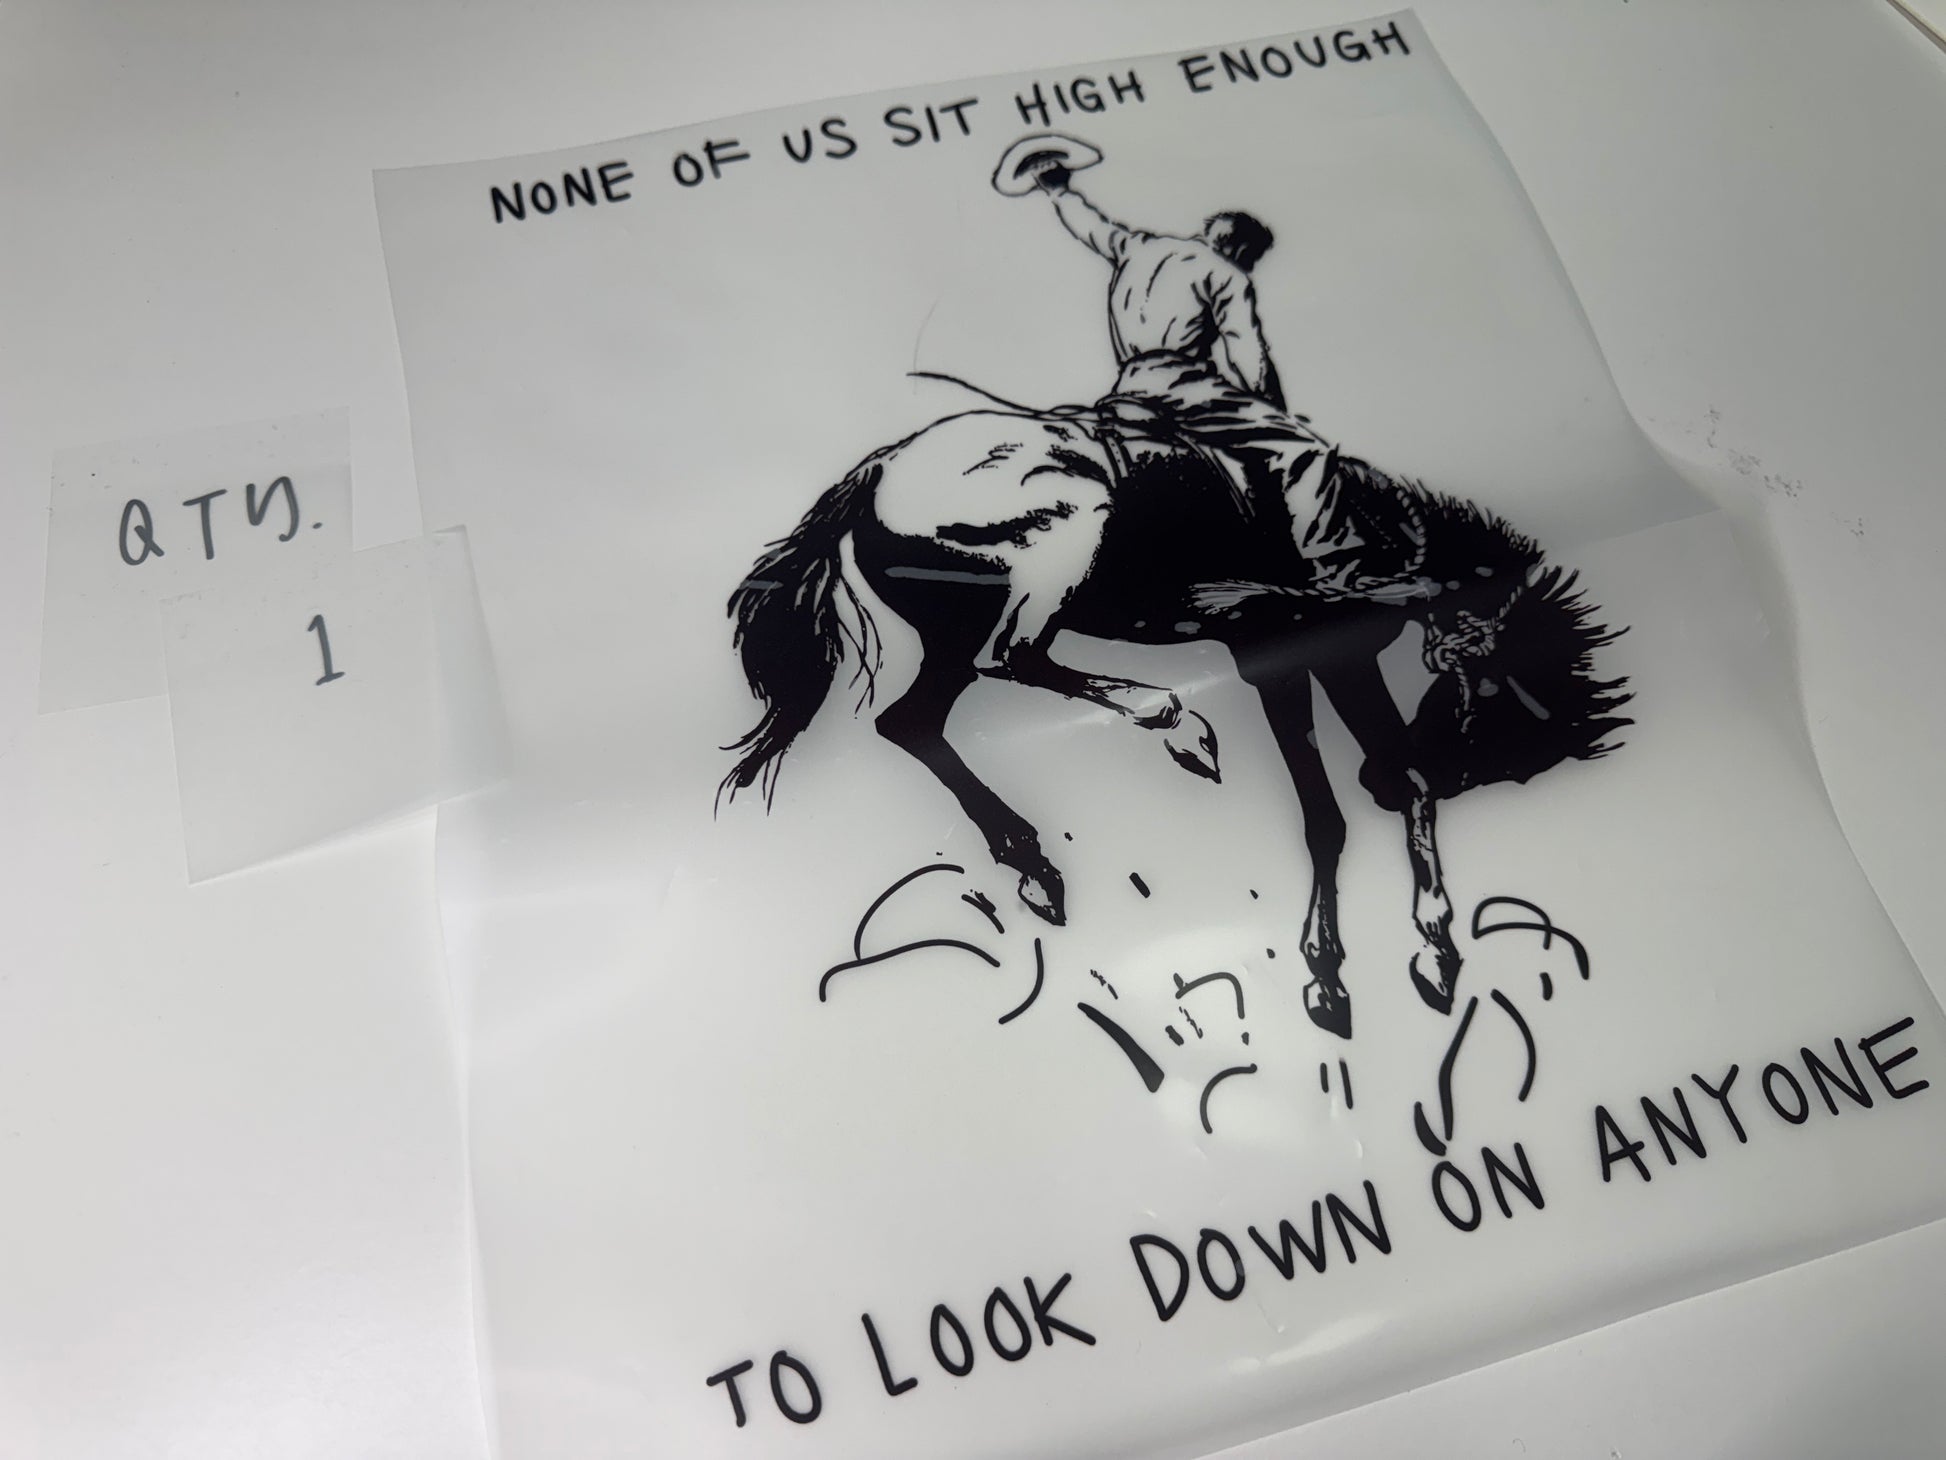 NONE OF US SIT HIGH ENOUGH
QTY.
1
TO LOOK DOWN ON ANYONE